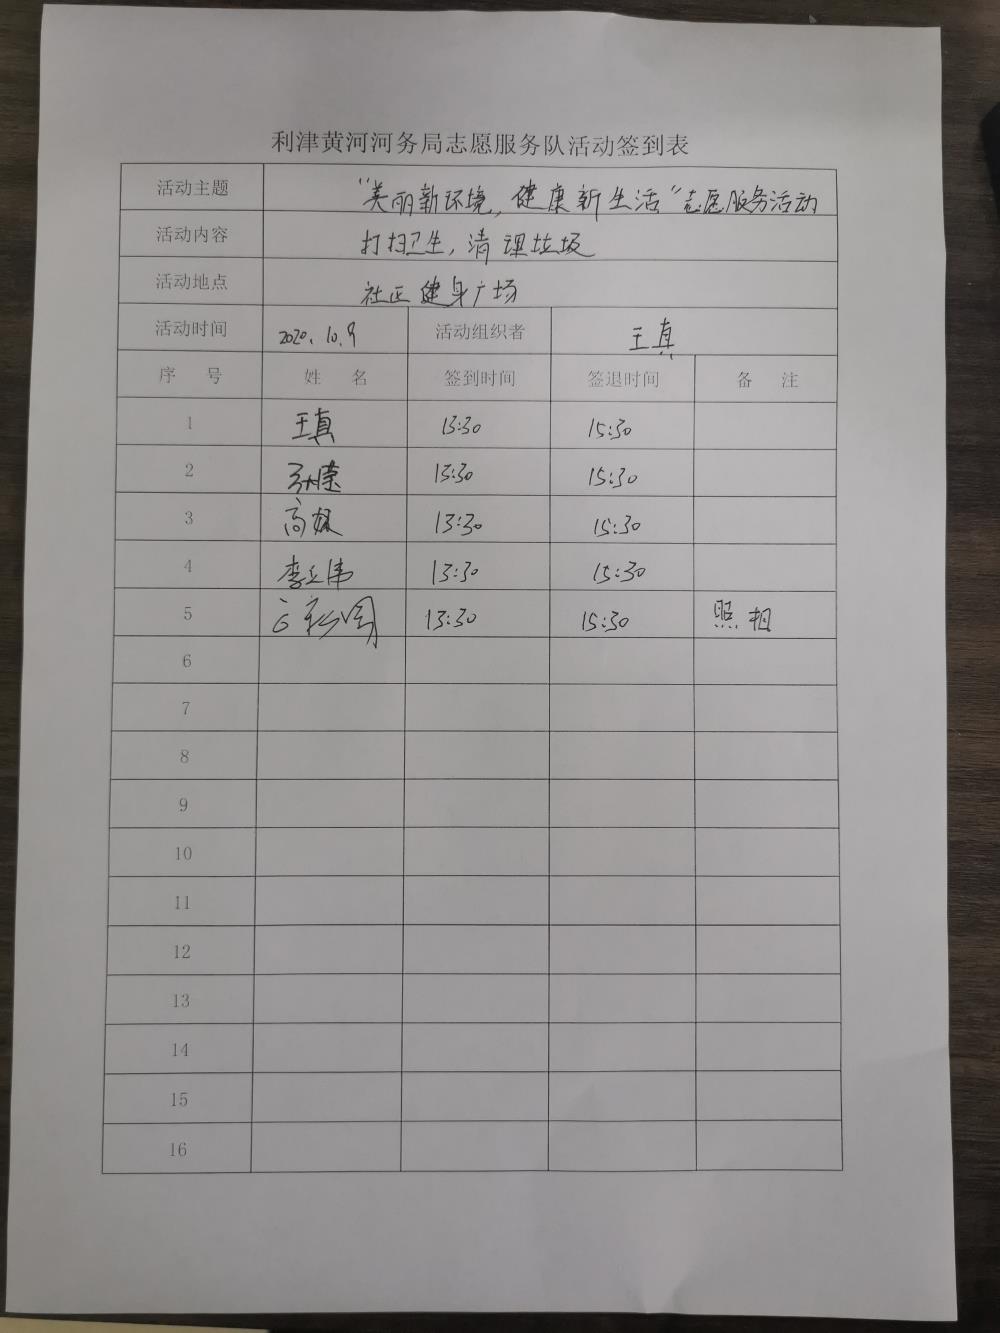 利津黄河河务局志愿服务队活动签到表
活动主题 “美丽新环境,健康新生活”志愿服务活动
活动内容 打扫卫生,清理垃圾
活动地点 社区健身广场
活动时间 2020.10.9 活动组织者 王真
序 号 姓 名 签到时间 签退时间 备 注
1 王真 13:30 15:30
2 13:30 15:30
3 高 13:30 15:30
4 李立伟 13:30 15:30
5 13:30 15:30 照相
6
7
8
9
10
11
12
13
14
15
16